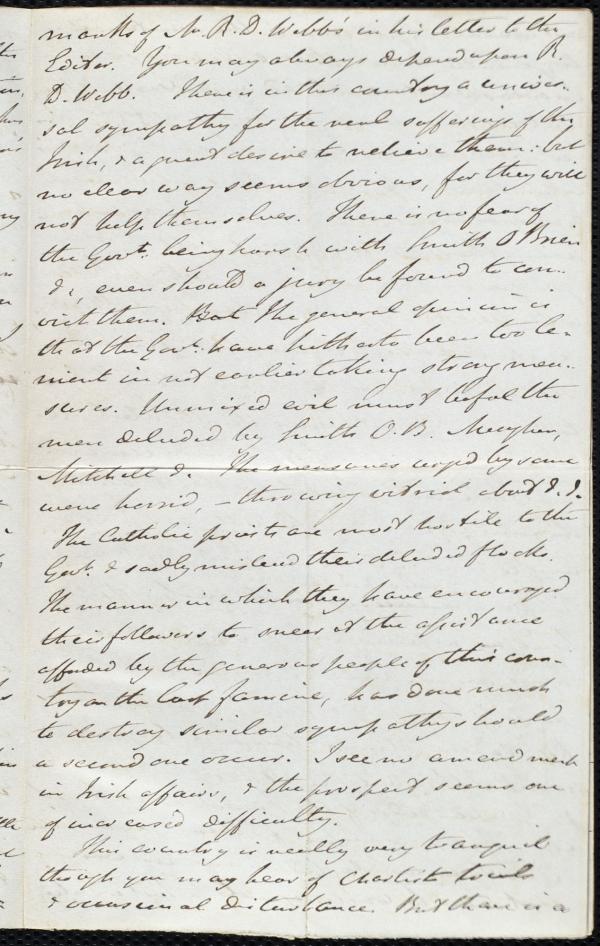 marks of Mr. R. D. Webb's in his letter to the
Editor. You may always depend upon R.
D. Webb. There is in this country a univer-
sal sympathy for the real sufferings of the
Irish, & a great desire to relieve them: but
no clear way seems obvious, for they will
not help themselves. There is no fear of
the Govt. being harsh with Smith O'Brien
&c, even should a jury be found to con-
vict them. But the general opinion is
that the Govt. have hitherto been too le-
nient in not earlier taking strong mea-
sures. Unmixed evil must befal the
men deluded by Smith O.B. Meagher,
Mitchell &c. The measures urged by some
were horrid, - throwing vitriol about &c.
The Catholic priests are most hostile to the
Govt. & sadly mislead their deluded flocks.
The manner in which they have encouraged
their followers to sneer at the assistance
afforded by the generous people of this coun-
try on the last famine, has done much
to destroy similar sympathy should
a second one occur. I see no amendment
in Irish affairs, & the prospect seems one
of increased difficulty.
This country is really very tranquil
though you may hear of Chartist trials
& occasional disturbance. But there is a